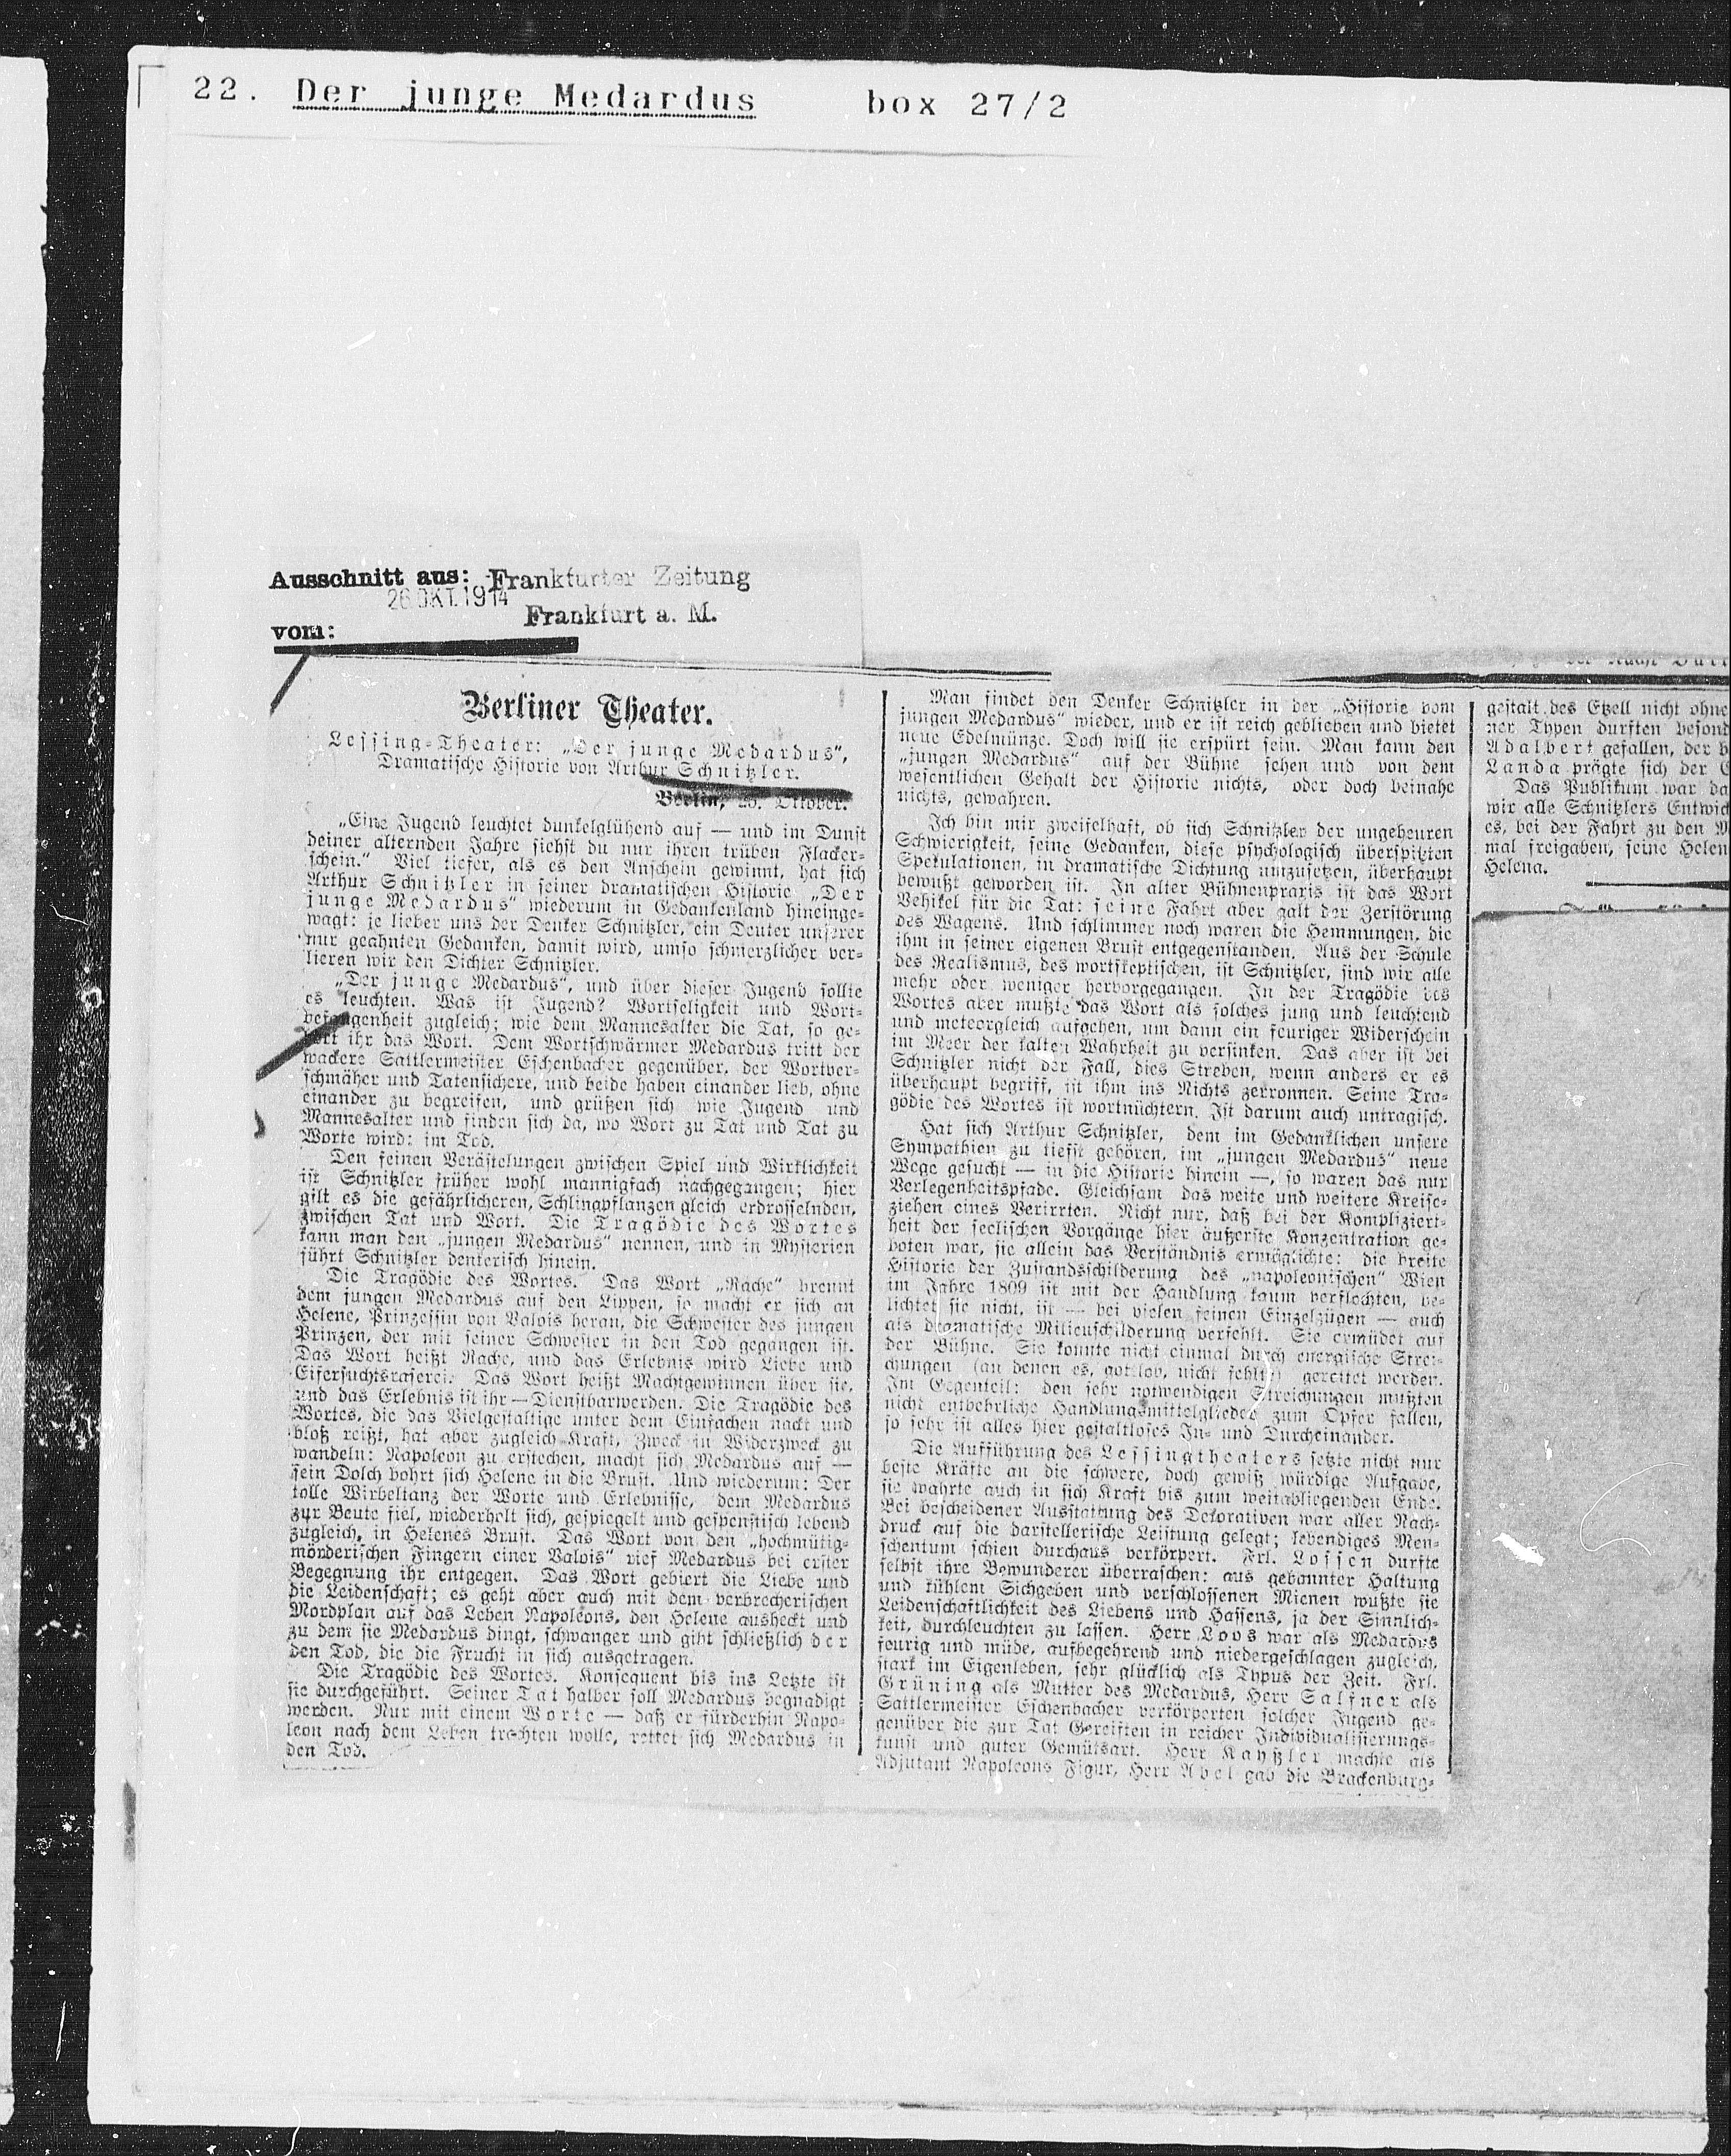 22. Der junge Medardus box 27/2
Ausschnitt aus: Frankfurter Zeitung
26.OKT.1914
Frankfurt a. M.
vom:
Berliner Theater.
Lessing-Theater: „Der junge Medardus“,
Dramatische Historie von Arthur Schnitzler.
Berlin, 25. Oktober.
„Eine Jugend leuchtet dunkelglühend auf — und im Dunst
deiner alternden Jahre siehst du nur ihren trüben Flacker-
schein.“ Viel tiefer, als es den Anschein gewinnt, hat sich
Arthur Schnitzler in seiner dramatischen Historie „Der
junge Medardus“ wiederum in Gedankenland hineinge-
wagt: je lieber uns der Denker Schnitzler, ein Deuter unserer
nur geahnten Gedanken, damit wird, umso schmerzlicher ver-
lieren wir den Dichter Schnitzler.
„Der junge Medardus“, und über dieser Jugend sollte
es leuchten. Was ist Jugend? Wortseligkeit und Wort-
befangenheit zugleich; wie dem Mannesalter die Tat, so ge-
hört ihr das Wort. Dem Wortschwärmer Medardus tritt der
wackere Sattlermeister Eschenbacher gegenüber, der Wortver-
schmäher und Tatensichere, und beide haben einander lieb, ohne
einander zu begreifen, und grüßen sich wie Jugend und
Mannesalter und finden sich da, wo Wort zu Tat und Tat zu
Worte wird: im Tod.
Den feinen Verästelungen zwischen Spiel und Wirklichkeit
ist Schnitzler früher wohl mannigfach nachgegangen; hier
gilt es die gefährlicheren, Schlingpflanzen gleich erdrosselnden,
zwischen Tat und Wort. Die Tragödie des Wortes
kann man den „jungen Medardus“ nennen, und in Mysterien
führt Schnitzler denkerisch hinein.
Die Tragödie des Wortes. Das Wort „Rache“ brennt
dem jungen Medardus auf den Lippen, so macht er sich an
Helene, Prinzessin von Valois heran, die Schwester des jungen
Prinzen, der mit seiner Schwester in den Tod gegangen ist.
Das Wort heißt Rache, und das Erlebnis wird Liebe und
Eifersuchtsraserei. Das Wort heißt Machtgewinnen über sie,
und das Erlebnis ist ihr — Dienstbarwerden. Die Tragödie des
Wortes, die das Vielgestaltige unter dem Einfachen nackt und
bloß reißt, hat aber zugleich Kraft, Zweck in Widerzweck zu
wandeln: Napoleon zu erstechen, macht sich Medardus auf —
sein Dolch bohrt sich Helene in die Brust. Und wiederum: Der
tolle Wirbeltanz der Worte und Erlebnisse, dem Medardus
zur Beute fiel, wiederholt sich, gespiegelt und gespenstisch lebend
zugleich, in Helenes Brust. Das Wort von den „hochmütig-
mörderischen Fingern einer Valois“ rief Medardus bei erster
Begegnung ihr entgegen. Das Wort gebiert die Liebe und
die Leidenschaft; es geht aber auch mit dem verbrecherischen
Mordplan auf das Leben Napoléons, den Helene ausheckt und
zu dem sie Medardus dingt, schwanger und gibt schließlich der
den Tod, die die Frucht in sich ausgetragen.
Die Tragödie des Wortes. Konsequent bis ins Letzte ist
sie durchgeführt. Seiner Tat halber soll Medardus begnadigt
werden. Nur mit einem Worte — daß er fürderhin Napo-
leon nach dem Leben trachten wolle, rettet sich Medardus in
den Tod.
Man findet den Denker Schnitzler in der „Historie vom
jungen Medardus“ wieder, und er ist reich geblieben und bietet
neue Edelmünze. Doch will sie erspürt sein. Man kann den
„jungen Medardus“ auf der Bühne sehen und von dem
wesentlichen Gehalt der Historie nichts, oder doch beinahe
nichts, gewahren.
Ich bin mir zweifelhaft, ob sich Schnitzler der ungeheuren
Schwierigkeit, seine Gedanken, diese psychologisch überspitzten
Spekulationen, in dramatische Dichtung umzusetzen, überhaupt
bewußt geworden ist. In alter Bühnenpraxis ist das Wort
Vehikel für die Tat: seine Fahrt aber galt der Zerstörung
des Wagens. Und schlimmer noch waren die Hemmungen, die
ihm in seiner eigenen Brust entgegenstanden. Aus der Schule
des Realismus, des wortskeptischen, ist Schnitzler, sind wir alle
mehr oder weniger hervorgegangen. In der Tragödie des
Wortes aber mußte das Wort als solches jung und leuchtend
und meteorgleich aufgehen, um dann ein feuriger Widerschein
im Meer der kalten Wahrheit zu versinken. Das aber ist bei
Schnitzler nicht der Fall, dies Streben, wenn anders er es
überhaupt begriff, ist ihm ins Nichts zerronnen. Seine Tra-
gödie des Wortes ist wortnüchtern. Ist darum auch untragisch.
Hat sich Arthur Schnitzler, dem im Gedanklichen unsere
Sympathien zu tiefst gehören, im „jungen Medardus“ neue
Wege gesucht — in die Historie hinein —, so waren das nur
Verlegenheitspfade. Gleichsam das weite und weitere Kreise-
ziehen eines Verirrten. Nicht nur, daß bei der Kompliziert-
heit der seelischen Vorgänge hier äußerste Konzentration ge-
boten war, sie allein das Verständnis ermöglichte: die breite
Historie der Zustandsschilderung des „napoleonischen“ Wien
im Jahre 1809 ist mit der Handlung kaum verflochten, be-
lichtet sie nicht, ist — bei vielen feinen Einzelzügen — auch
als dramatische Milieuschilderung verfehlt. Sie ermüdet auf
der Bühne. Sie konnte nicht einmal durch energische Strei-
chungen (an denen es, gottlob, nicht fehlt) gerettet werden.
Im Gegenteil: den sehr notwendigen Streichungen mußten
nicht entbehrliche Handlungsmittelglieder zum Opfer fallen,
so sehr ist alles hier gestaltloses In- und Durcheinander.
Die Aufführung des Lessingtheaters setzte nicht nur
beste Kräfte an die schwere, doch gewiß würdige Aufgabe,
sie wahrte auch in sich Kraft bis zum weitabliegenden Ende.
Bei bescheidener Ausstattung des Dekorativen war aller Nach-
druck auf die darstellerische Leistung gelegt; lebendiges Men-
schentum schien durchaus verkörpert. Frl. Lossen durfte
selbst ihre Bewunderer überraschen: aus gebannter Haltung
und kühlem Sichgeben und verschlossenen Mienen wußte sie
Leidenschaftlichkeit des Liebens und Hassens, ja der Sinnlich-
keit, durchleuchten zu lassen. Herr Loos war als Medardus
feurig und müde, aufbegehrend und niedergeschlagen zugleich,
stark im Eigenleben, sehr glücklich als Typus der Zeit. Frl.
Grüning als Mutter des Medardus, Herr Salfner als
Sattlermeister Eschenbacher verkörperten solcher Jugend ge-
genüber die zur Tat Gereiften in reicher Individualisierungs-
kunst und guter Gemütsart. Herr Kayßler machte als
Adjutant Napoleons Figur, Herr Abel gab die Brackenburg-
gestalt des Etzell nicht ohne
ner Typen durften besond
Adalbert gefallen, der b
Landa prägte sich der
Das Publikum war da
wir alle Schnitzlers Entwick
es, bei der Fahrt zu den M
mal freigaben, seine Helen
Helena.